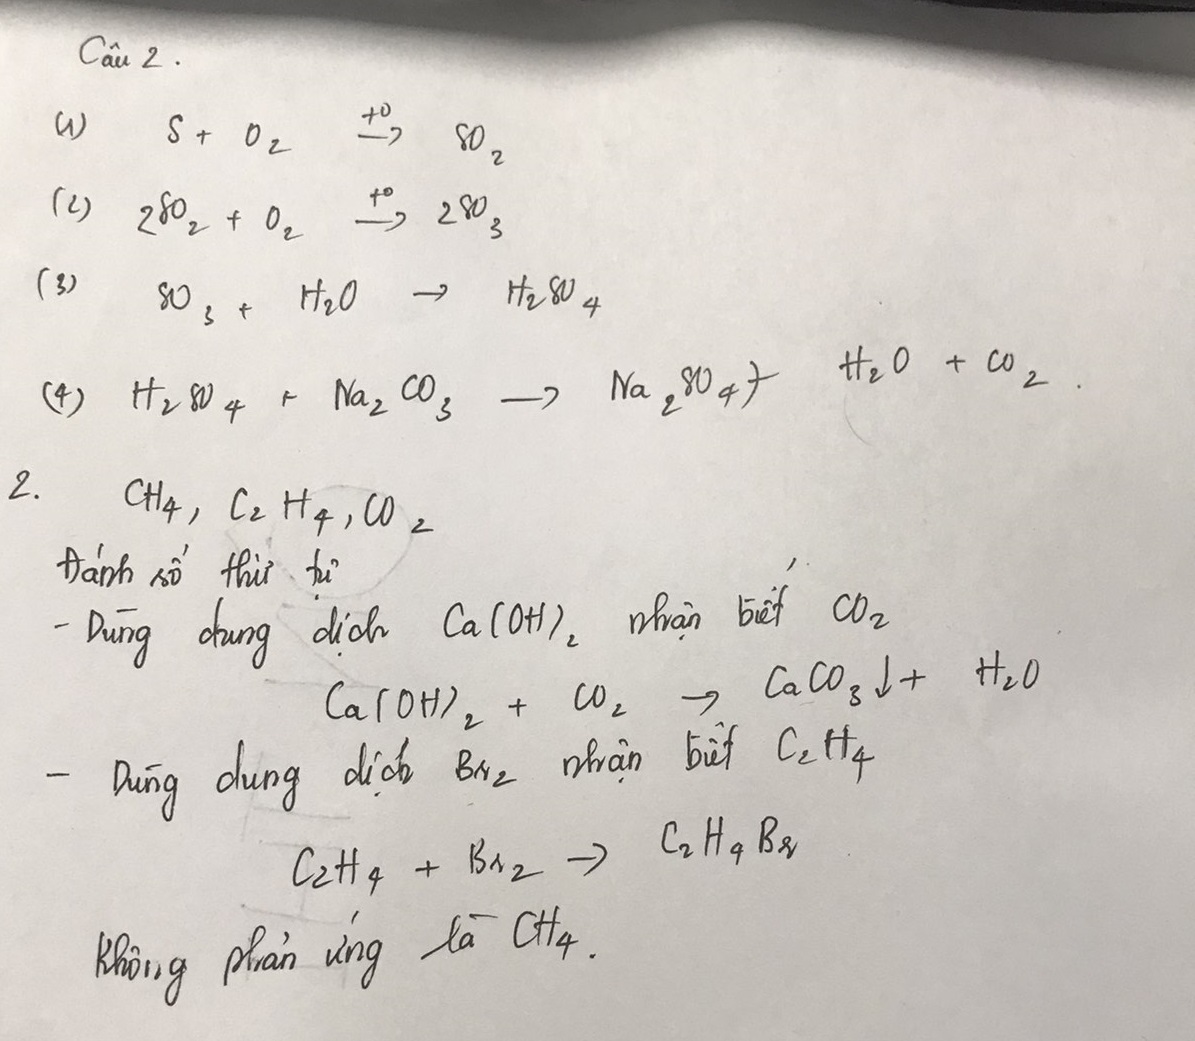 Câu 2.
(1) S + O2 t0→ SO2
(2) 2SO2 + O2 t0→ 2SO3
(3) SO3 + H2O → H2SO4
(4) H2SO4 + Na2CO3 → Na2SO4 + H2O + CO2.
2. CH4, C2H4, CO2
Đánh số thứ tự
- Dùng dung dịch Ca(OH)2 nhận biết CO2
Ca(OH)2 + CO2 → CaCO3↓ + H2O
- Dùng dung dịch Br2 nhận biết C2H4
C2H4 + Br2 → C2H4Br
Không phản ứng là CH4.